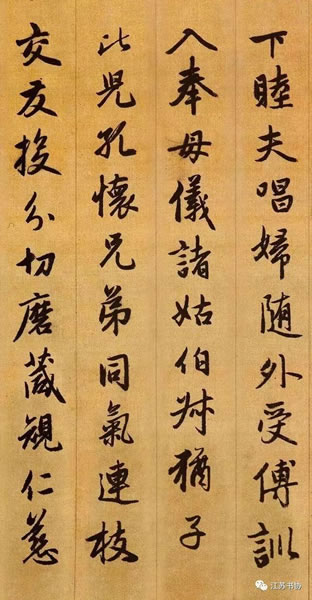 下睦夫唱婦随外受傅訓
入奉母儀諸姑伯叔猶子
比兒孔懷兄弟同氣連枝
交友投分切磨葴規仁慈
江苏书协